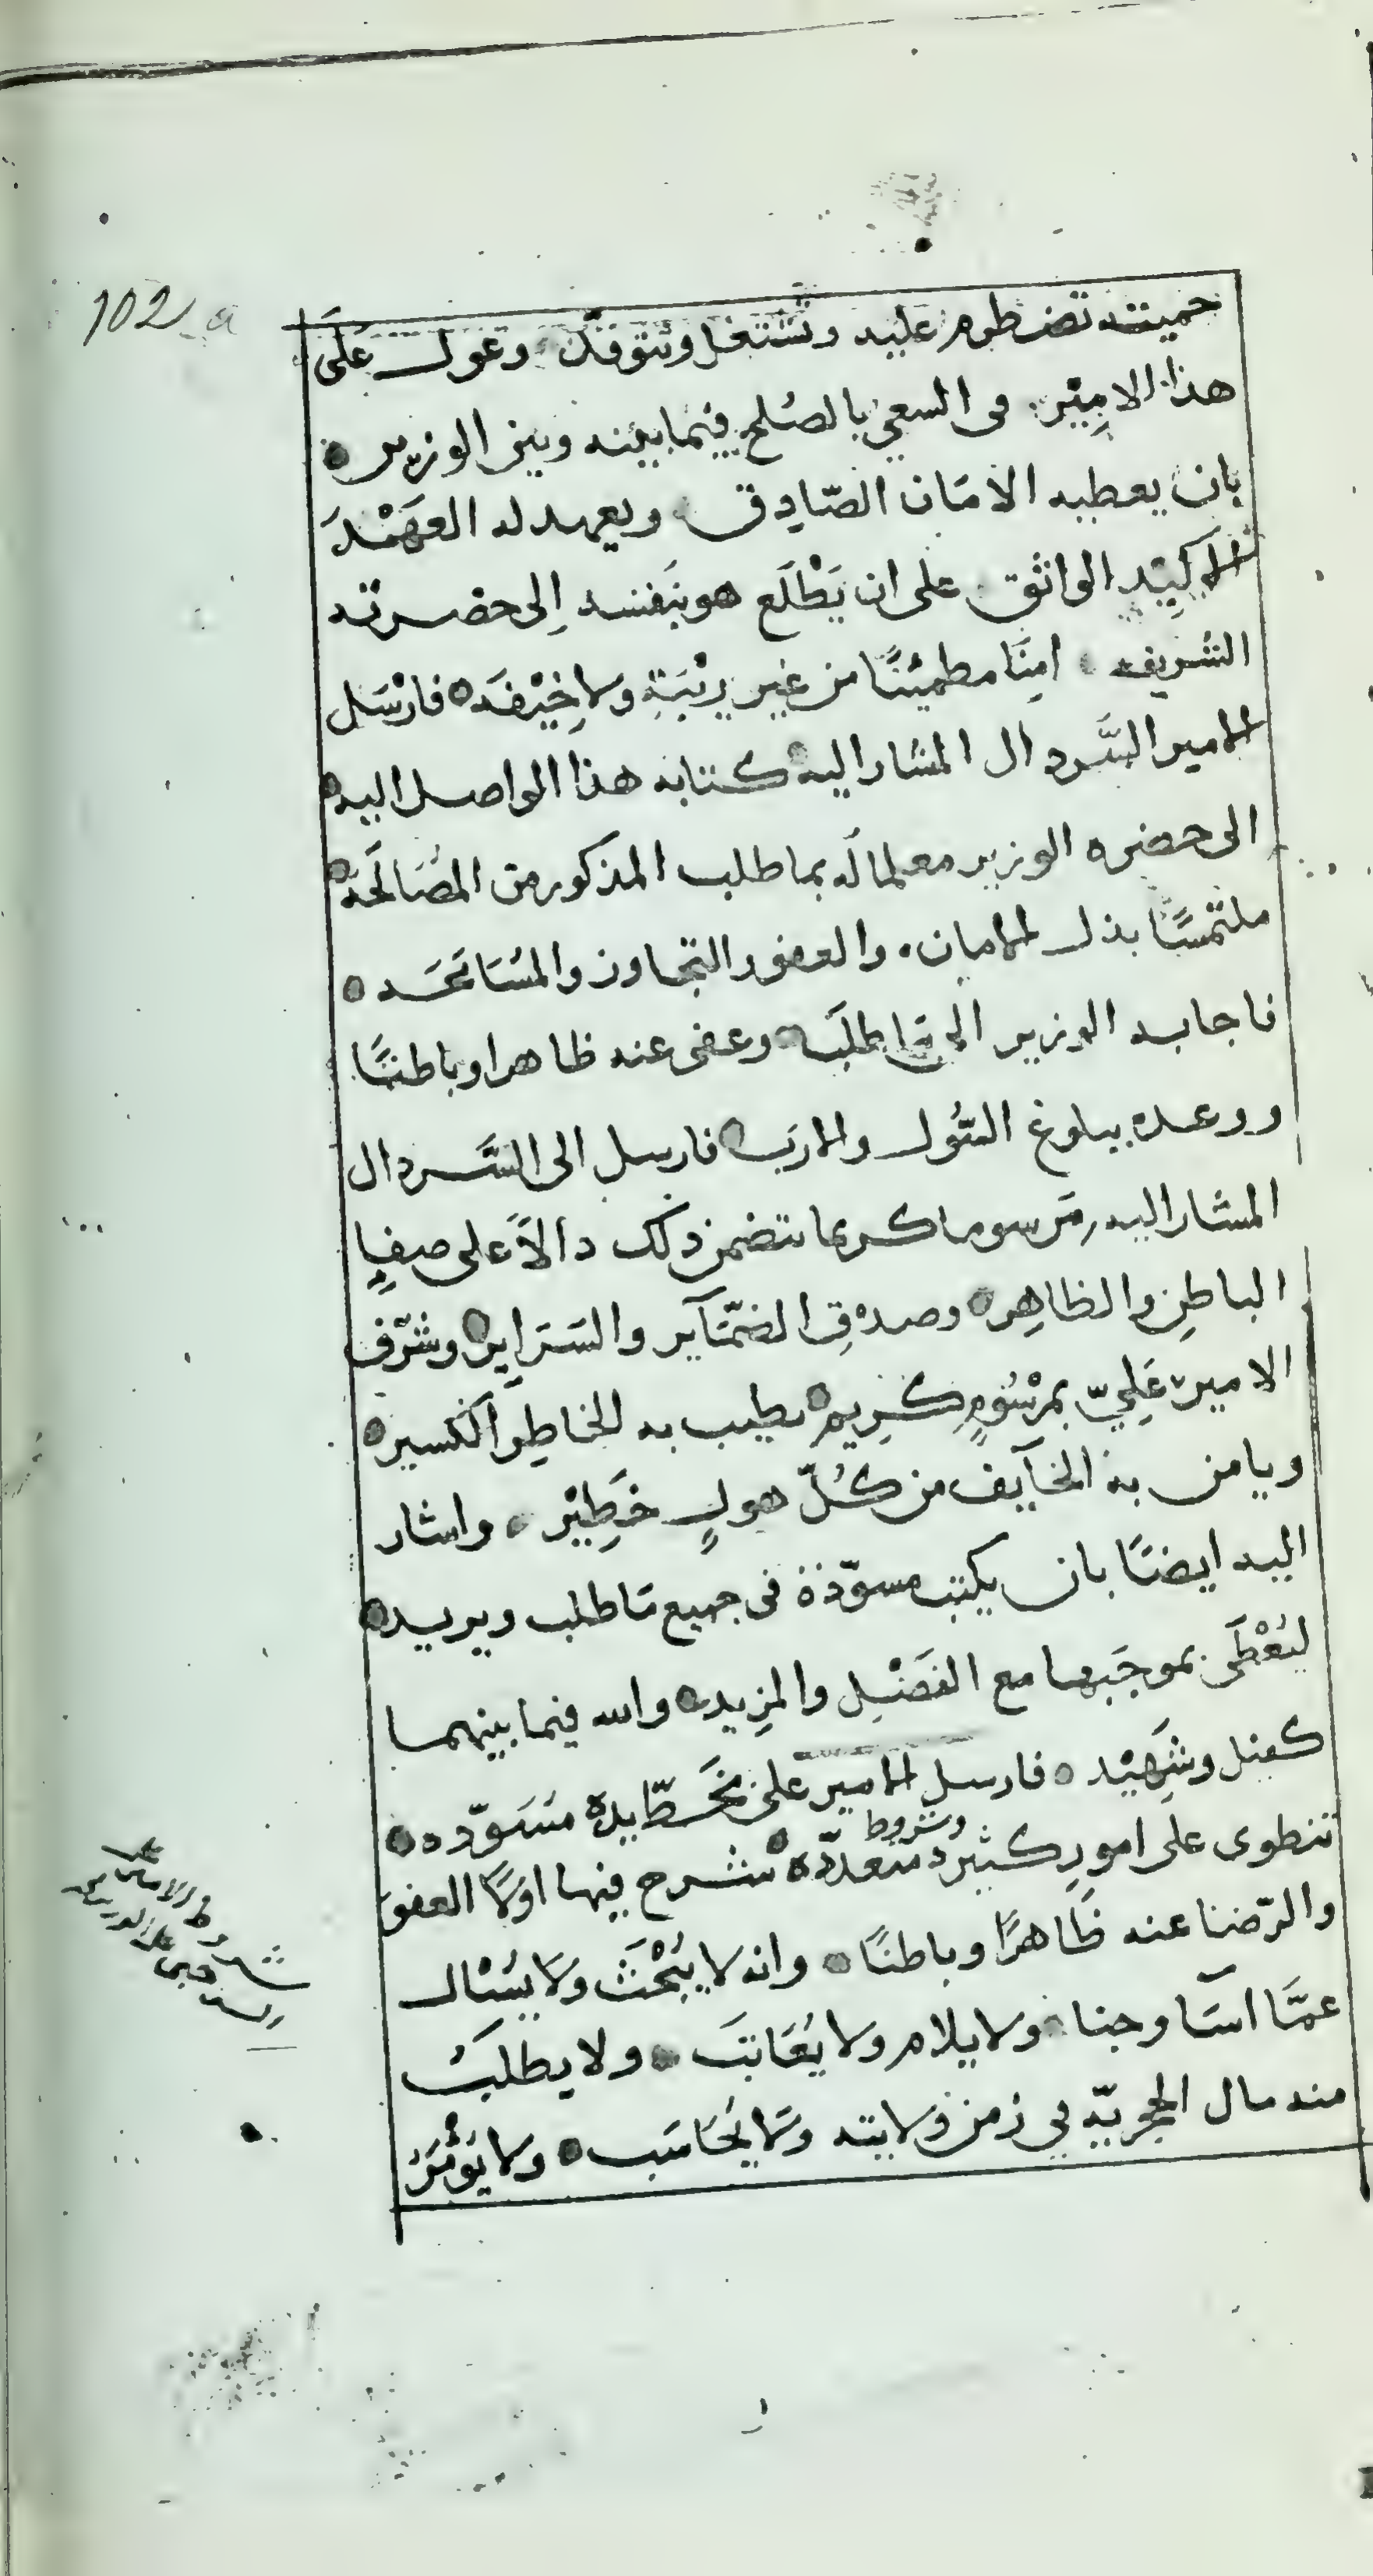 102 a
حميته تضطرم عليه وتشتعل وتتوقد وعول على
هذا الامير في السعي بالصلح فيما بينه وبين الوزير
بان يعطيه الامان الصّادق ويعهد له العهد
الاكيد الواثق على ان يطلع هو بنفسه إلى حضرته
الشريفه امنًا مطمينًا من غير ريبةٍ ولا خيفه فارسل
الامير السّردال المشار اليه كتابه هذا الواصل اليه
الى حضره الوزير معلما له بما طلب المذكور من المصالحه
ملتمسًا بذل الامان والعفو والتجاوز والمسامحه
فاجابه الوزير الى ما طلبه وعفى عنه ظاهرا وباطنًا
ووعده ببلوغ السّول والارب فارسل الى السّردال
المشار اليه مرسوما كريما يتضمن ذلك دالاً على صفا
الباطن والظاهر وصدق الضمّاير والسراير وشرّف
الامير عليّ بمرسومٍ كريم يطيب به الخاطر الكسير
ويامن به الخآيف من كلّ هولٍ خطير واشار
اليه ايضًا بان يكتب مسوّدة في جميع ما طلب ويريد
ليعطى بموجبها مع الفضل والمزيد والله فيما بينهما
كفيل وشهيد فارسل الامير على بخطّ يده مسوّده
تنطوى على امورٍ كثيره وشروط متعدّده شرح فيها اولًا العفو
والرّضا عنه ظاهرًا وباطنًا وانه لا يبحث ولا يسال
عمّا اسآ وجنا ولا يلام ولا يعاتب ولا يطلب
منه مال الحجريّه في زمن ولايته ولا يحاسب ولا يومر
شروط الامير على